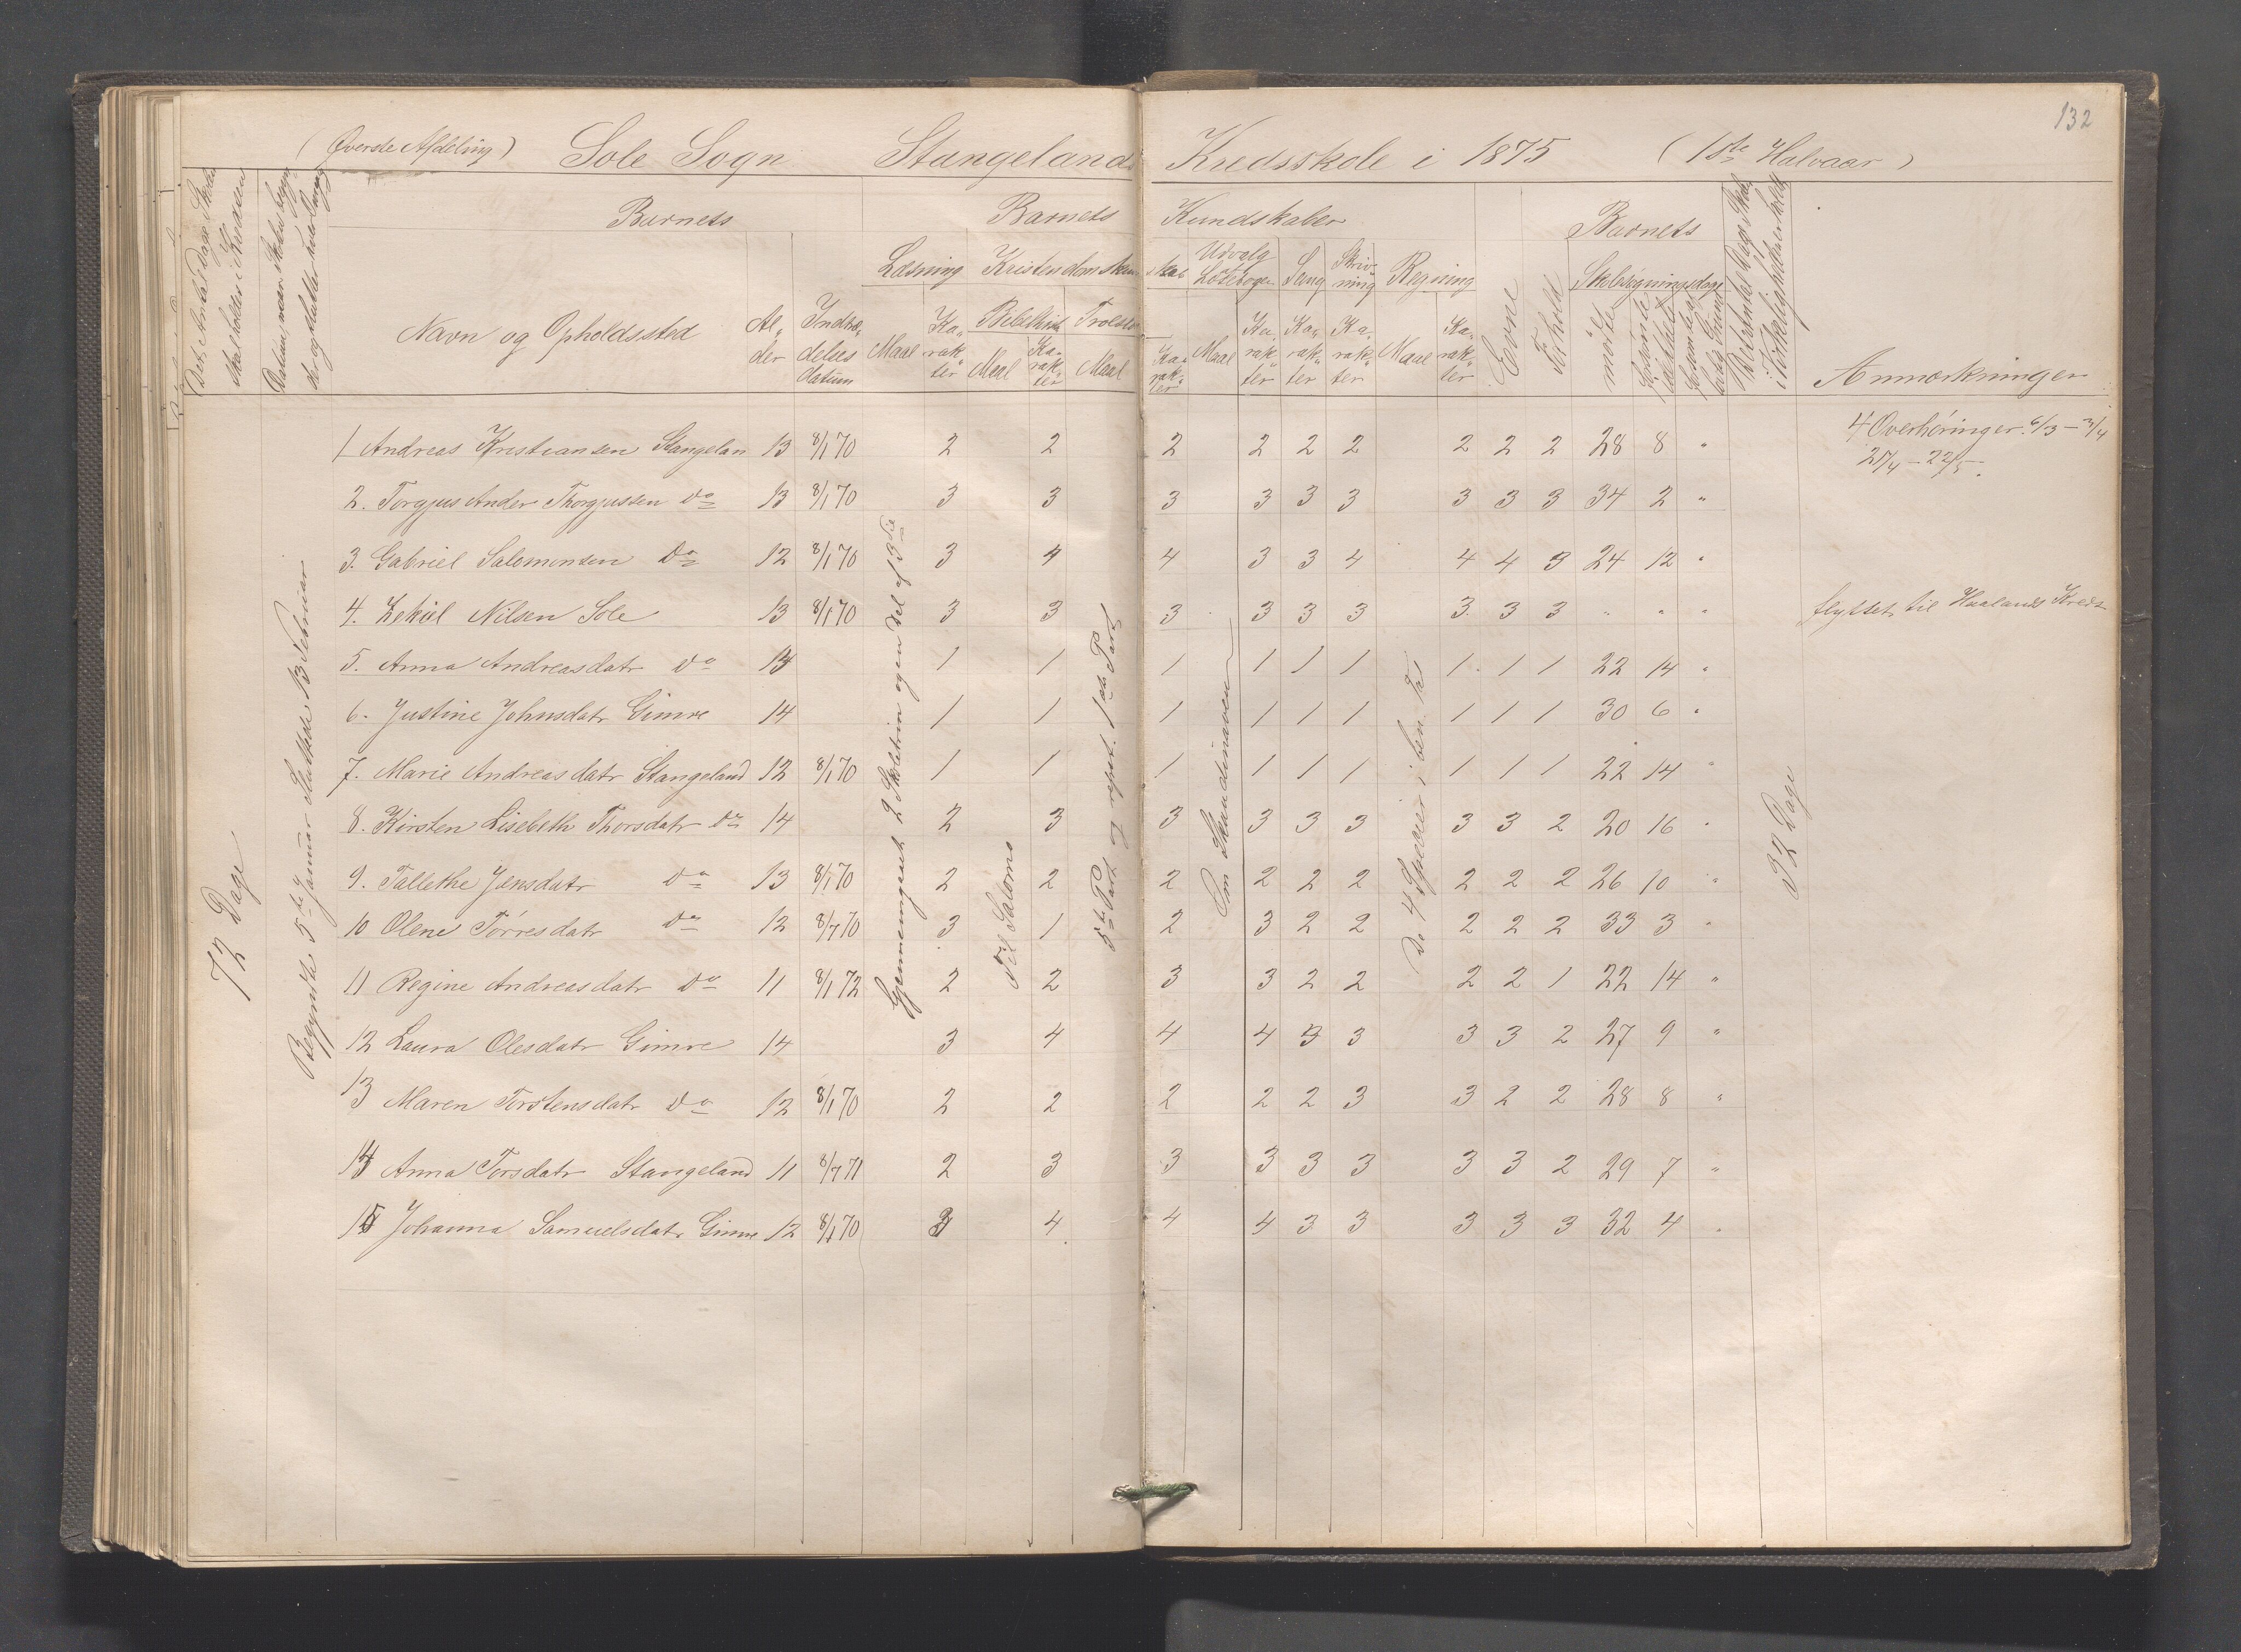 132
(Øverste Afdeling) Sole Sogn Stangeland Kredsskole i 1875 (1ste Halvaar)
Det Antal Dage Skole skal holdes i Kredsen
Datum, naar Skolen begynder og slutter hver Omgang
Barnets
Navn og Opholdssted
Al-der
Indtræ-delses datum
Barnets Kundskaber
Læsning
Maal
Ka-rak-ter
Kristendomskundskab
Bibelhist
Maal
Ka-rak-ter
Troeslære
Maal
Ka-rak-ter
Udvalg Læsebogen
Maal
Ka-rak-ter
Sang
Ka-rak-ter
Skriv-ning
Ka-rak-ter
Regning
Maal
Ka-rak-ter
Evne
Forhold
Barnets
Skolesøgningsdage
mødte
forsømte
Det Antal Dage Skole i Virkeligheden holdt
Anmærkninger
72 Dage
Begyndte 5te Januar Sluttede 13 Februar
Gjennemgaaet 2 Skoletrin og en Del af 3die
Til Salomo
5te Part og repet. 1ste Part
Om Skandinavien
De 4 Specier i ben. Tal
32 Dage
1 Andreas Kristiansen Stangelan 13 8/1 70 2 2 2 2 2 2 2 2 2 28 8 " 4 Overhøringer 6/3 - 3/4
21/4 - 22/5.
2. Torgjus Ander Thorgjussen do 13 8/1 70 3 3 3 3 3 3 3 3 3 34 2 "
3. Gabriel Salomonsen do 12 8/1 70 3 4 4 3 3 4 4 4 3 24 12 "
4. Zekiel Nilsen Sole 13 8/1 70 3 3 3 3 3 3 3 3 3 " " " flyttet til Haalands Kreds
5. Anna Andreasdatr do 14 1 1 1 1 1 1 1 1 1 22 14 "
6. Justine Johnsdatr Gimre 14 1 1 1 1 1 1 1 1 1 30 6 "
7. Marie Andreasdatr Stangeland 12 8/1 70 1 1 1 1 1 1 1 1 1 22 14 "
8. Kirsten Lisebeth Thorsdatr do 14 2 3 3 3 3 3 3 3 2 20 16 "
9. Tallethe Jensdatr do 13 8/1 70 2 2 2 2 2 2 2 2 2 26 10 "
10 Olene Tørresdatr do 12 8/7 70 3 1 2 3 2 2 2 2 2 33 3 "
11 Regine Andreasdatr do 11 8/1 72 2 2 3 3 2 2 2 2 1 22 14 "
12 Laura Olesdatr Gimre 14 3 4 4 4 3 3 3 3 2 27 9 "
13 Maren Torstensdatr do 12 8/1 70 2 2 2 2 2 3 3 2 2 28 8 "
14 Anna Torsdatr Stangeland 11 8/7 71 2 3 3 3 3 3 3 3 2 29 7 "
15 Johanna Samuelsdatr Gimre 12 8/1 70 3 4 4 4 3 3 3 3 3 32 4 "